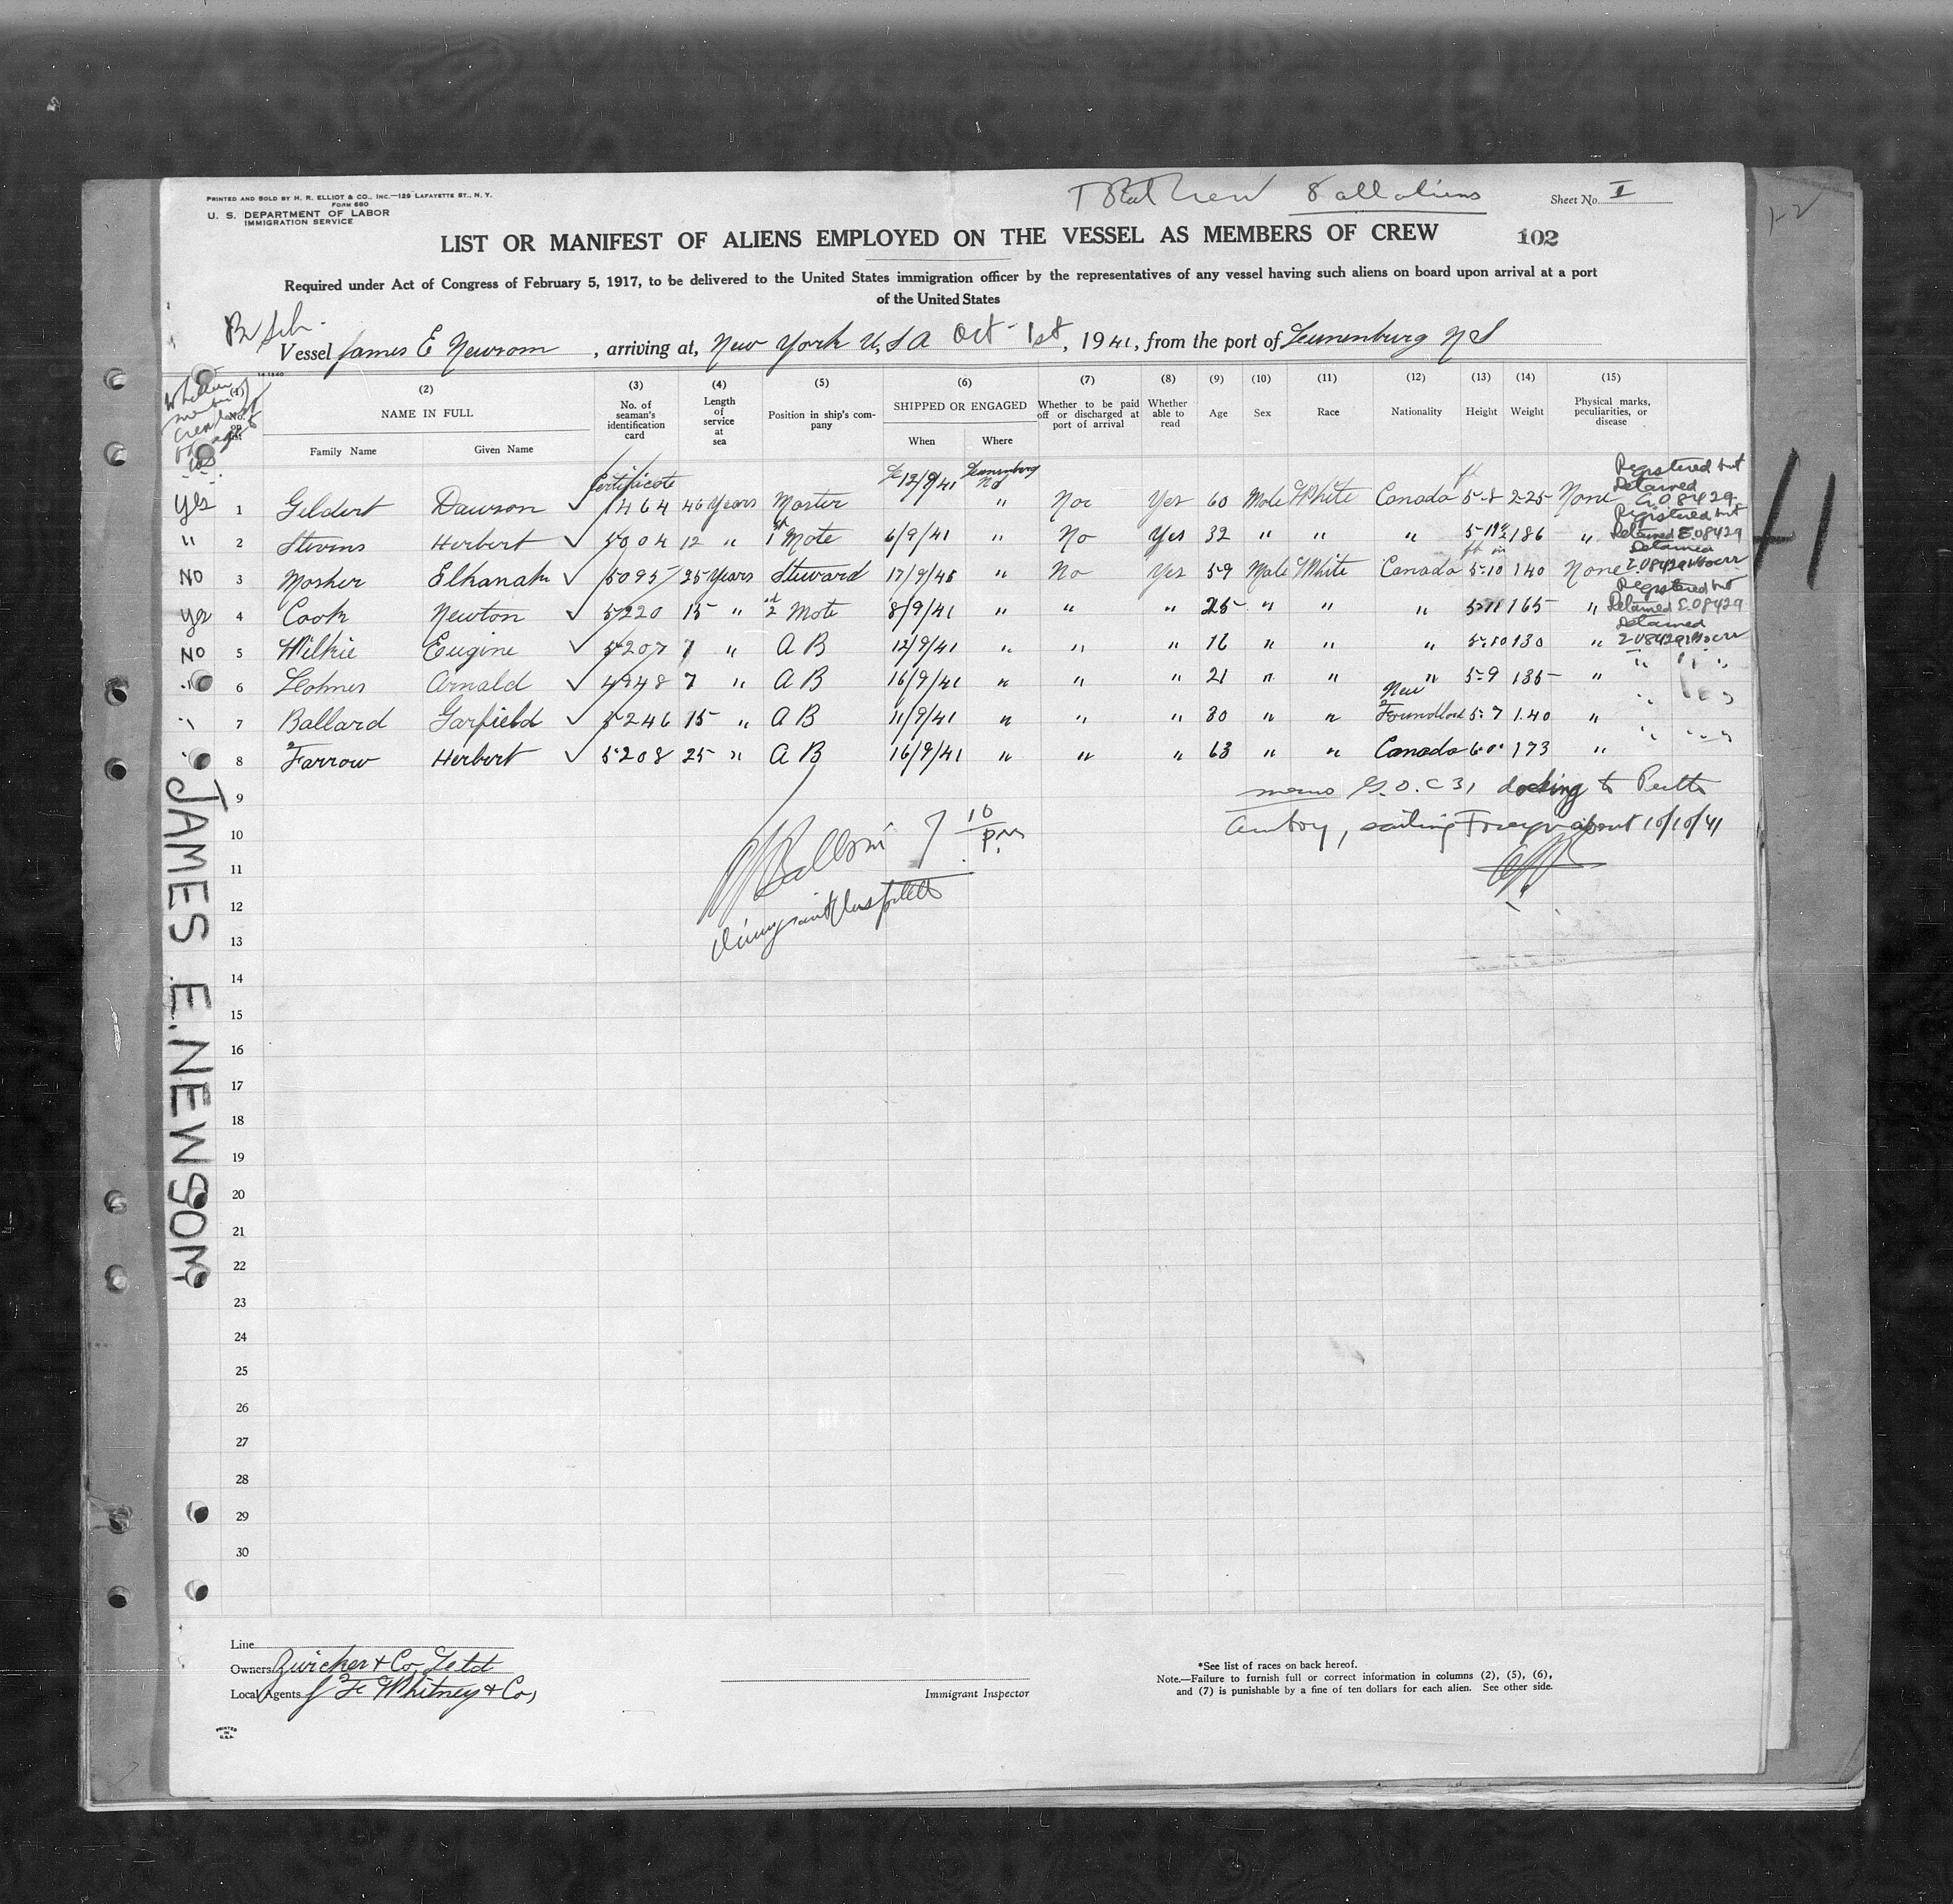 PRINTED AND SOLD BY H. R. ELLIOT & CO., INC.—129 LAFAYETTE ST., N. Y.
FORM 680
U. S. DEPARTMENT OF LABOR
IMMIGRATION SERVICE
8 all aliens
Sheet No. I
LIST OR MANIFEST OF ALIENS EMPLOYED ON THE VESSEL AS MEMBERS OF CREW
102
Required under Act of Congress of February 5, 1917, to be delivered to the United States immigration officer by the representatives of any vessel having such aliens on board upon arrival at a port
of the United States
Br Sch.
Vessel James E Newsom, arriving at, New York U,S A Oct 1st, 1941, from the port of Lunenburg N S
(1) (2) (3) (4) (5) (6) (7) (8) (9) (10) (11) (12) (13) (14) (15)
NAME IN FULL
Family Name Given Name
No. of seaman's identification card
Length of service at sea
Position in ship's company
SHIPPED OR ENGAGED
When Where
Whether to be paid off or discharged at port of arrival
Whether able to read
Age
Sex
Race
Nationality
Height
Weight
Physical marks, peculiarities, or disease
Certificate Lunenburg NS
Registered but Detained
Yes 1 Geldert Dawson 1464 46 Years Master 12/9/41 " No Yes 60 Male White Canada 5-8 225 None
Registered but
" 2 Stevens Herbert ✓ 5004 12 " 1st Mate 6/9/41 " No Yes 32 " " " 186 " Detained E.08429
Detained
No 3 Mosher Elkanah ✓ 5095 25 Years Steward " No Yes 59 Male White Canada 5-10 140 None
Registered but
Yes 4 Cook Newton ✓ 5220 15 " 2nd Mate 8/9/41 " " " 25 " " " 5-11 165 " Detained E.08429
Detained
No 5 Wilkie Eugine 5207 7 " A B 12/9/41 " " " 16 " " " 5-10 130 "
" 6 Arnald ✓ 4948 7 " A B 16/9/41 " " " 21 " " " 5-9 135 "
" 7 Ballard Garfield ✓ 5246 15 " A B 11/9/41 " " " 30 " " New Foundland 5-7 140 "
" 8 Farrow Herbert ✓ 5208 25 " A B 16/9/41 " " " 63 " " Canada 6-0 173 "
9
memo docking to Perth
10
Amboy, sailing Foreign about 10/10/41
7 10 P.M
11
12
Immigrant Inspector
13
14
15
16
17
18
19
20
21
22
23
24
25
26
27
28
29
30
JAMES E. NEWSOM
41
Line
Owners Zwicker & Co, Letd
Local Agents J F Whitney & Co,
Immigrant Inspector
*See list of races on back hereof.
Note.—Failure to furnish full or correct information in columns (2), (5), (6),
and (7) is punishable by a fine of ten dollars for each alien. See other side.
PRINTED
IN
U.S.A.